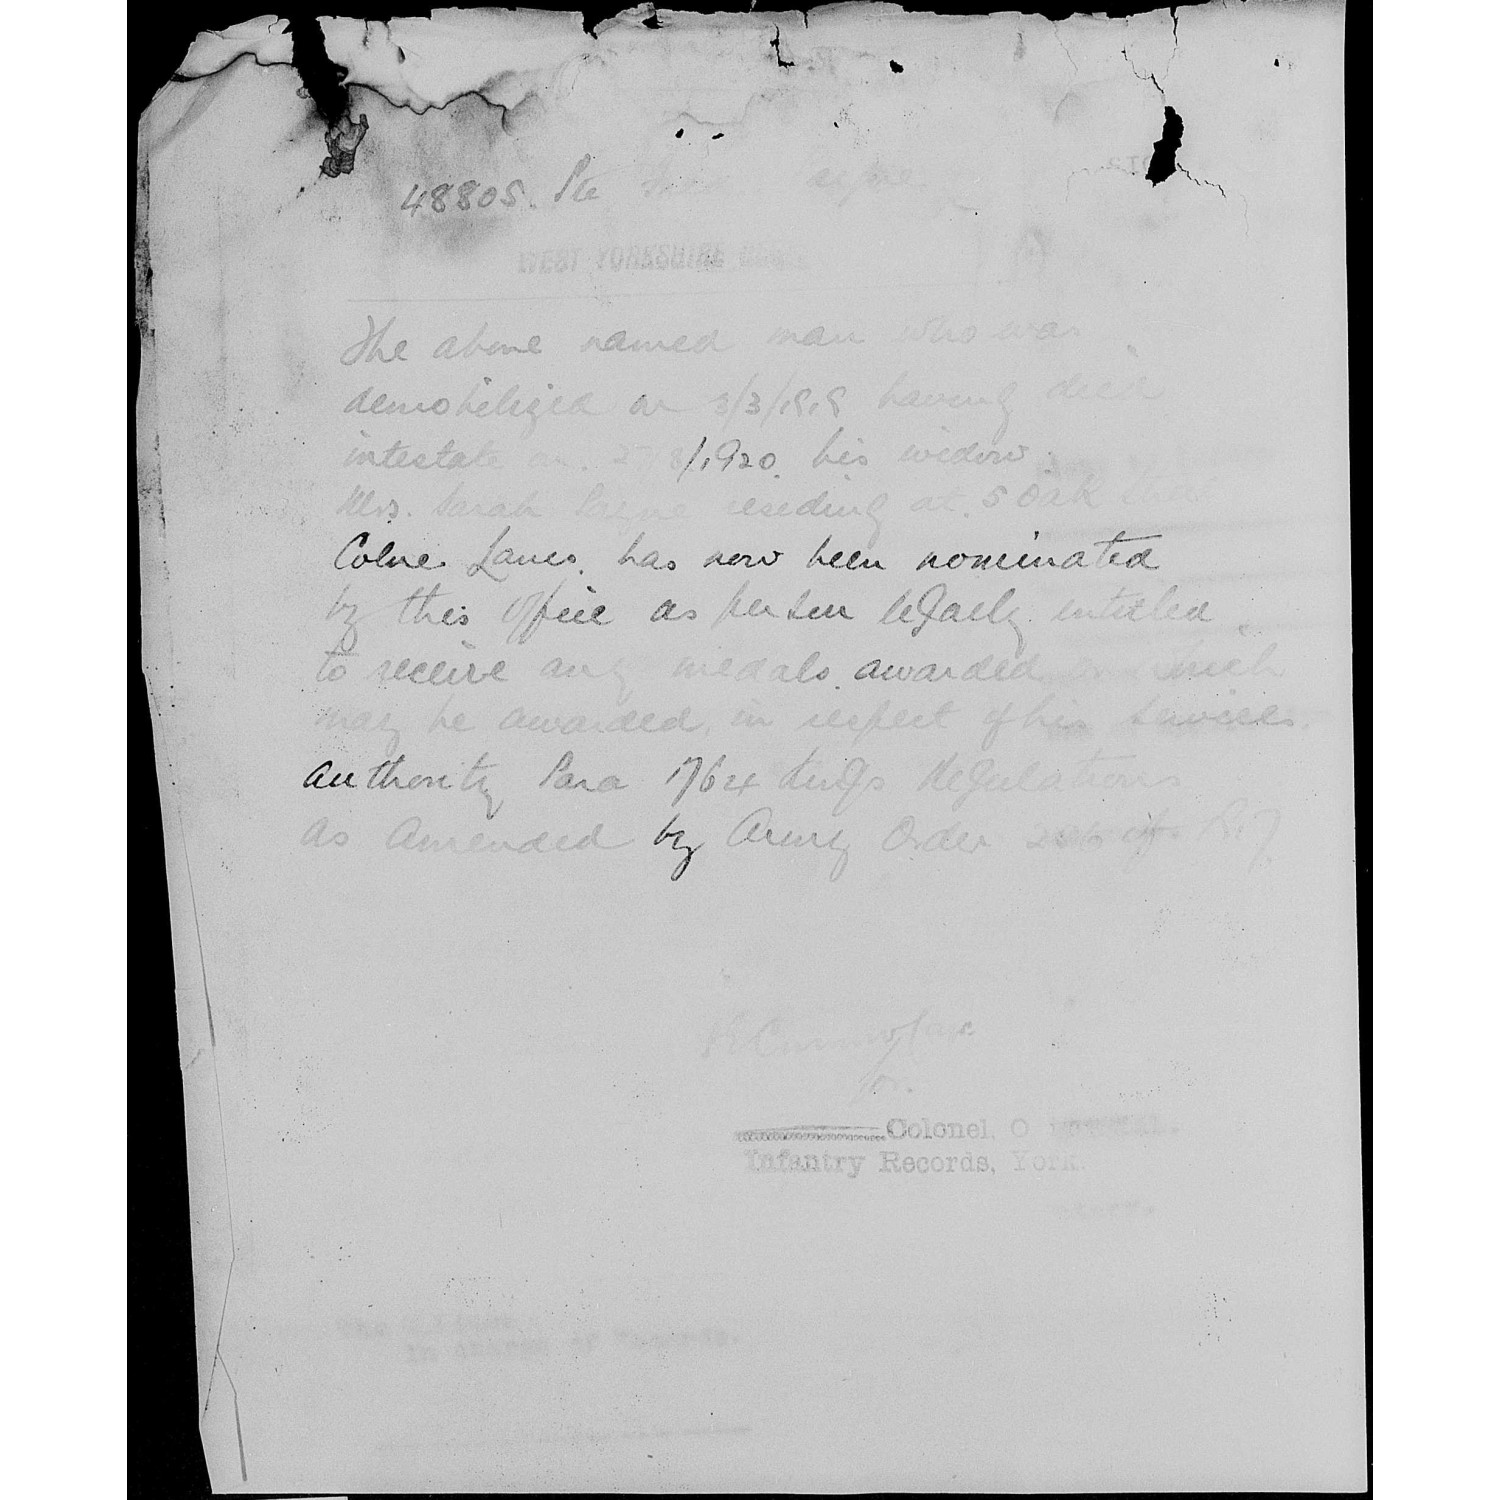 48805. Pte
WEST YORKSHIRE
The above named man who was
demobilized on 3/3/1919 having died
intestate on 27/8/1920. his widow
Mrs. Sarah Payne residing at 5 Oak Street
Colne Lancs. has now been nominated
by this office as person legally entitled
to receive any medals awarded or which
may be awarded, in respect of his services.
Authority Para 1764 Kings Regulations
as amended by Army Order
for.
Colonel, O
Infantry Records, York.
in charge of Records.